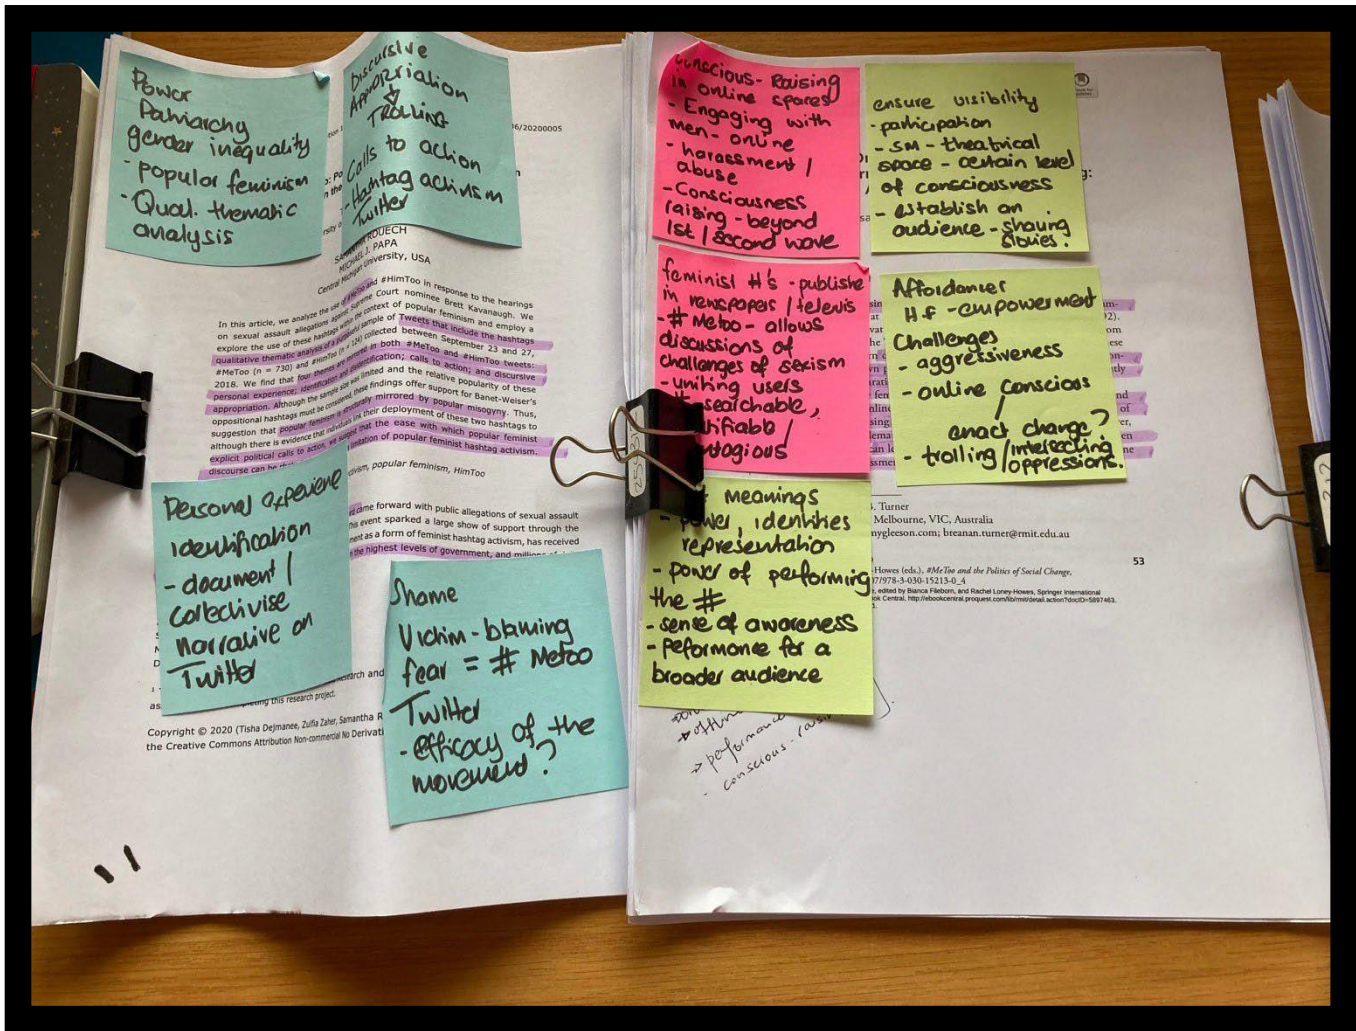 Power
Patriarchy
gender inequality
- popular feminism
- Qual. thematic
analysis
Discursive
Appropriation
TROLLING
- Calls to action
- Hashtag activism
Twitter
/20200005
MICHAEL J. PAPA
Central Michigan University, USA
In this article, we analyze the use of #MeToo and #HimToo in response to the hearings
on sexual assault allegations against Supreme Court nominee Brett Kavanaugh. We
explore the use of these hashtags within the context of popular feminism and employ a
qualitative thematic analysis of a purposeful sample of Tweets that include the hashtags
#MeToo (n = 730) and #HimToo (n = 124) collected between September 23 and 27,
2018. We find that four themes are mirrored in both #MeToo and #HimToo tweets:
personal experience; identification and disidentification; calls to action; and discursive
appropriation. Although the sample size was limited and the relative popularity of these
oppositional hashtags must be considered, these findings offer support for Banet-Weiser's
suggestion that popular feminism is structurally mirrored by popular misogyny. Thus,
although there is evidence that individuals link their deployment of these two hashtags to
explicit political calls to action, we suggest that the ease with which popular feminist
discourse can be limitation of popular feminist hashtag activism.
activism, popular feminism, HimToo
came forward with public allegations of sexual assault
This event sparked a large show of support through the
as a form of feminist hashtag activism, has received
the highest levels of government, and
Personal experience
identification
- document /
collectivise
narrative on
Twitter
Shame
Victim-blaming
fear = # Metoo
Twitter
- efficacy of the
movement?
this research project.
Copyright © 2020 (Tisha Dejmanee, Zulfia Zaher, Samantha R
the Creative Commons Attribution Non-commercial No Derivati
conscious-Raising
in online spaces
- Engaging with
men - online
- harassment /
abuse
- Consciousness
raising - beyond
1st / second wave
ensure visibility
- participation
- SM - theatrical
space - certain level
of consciousness
- establish an
audience - sharing
stories.
feminist #'s - publishe
in newspapers / televis
- # Metoo - allows
discussions of
challenges of sexism
- uniting users
searchable,
Affordances
H.f - empowerment
Challenges
- aggressiveness
- online conscious
/
enact change?
- trolling / intersecting
oppressions.
meanings
- power, identities
representation
- power of performing
the #
- sense of awareness
- performance for a
broader audience
Turner
Melbourne, VIC, Australia
mygleeson.com; breanan.turner@rmit.edu.au
53
-Howes (eds.), #MeToo and the Politics of Social Change,
/978-3-030-15213-0_4
, edited by Bianca Fileborn, and Rachel Loney-Howes, Springer International
Central, http://ebookcentral.proquest.com/lib/rmit/detail.action?docID=5897463.
→ performance